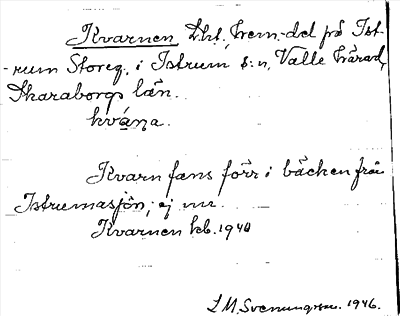 Kvarnen, Lht, hem.-del på Ist-
-rum Storeg. i Istrum s:n, Valle härad,
Skaraborgs län.
kvá̱ṇa.
Kvarn fans förr i bäcken från
Istrumasjön, ej nu.
Kvarnen kb. 1940
L M. Svenungsson. 1946.